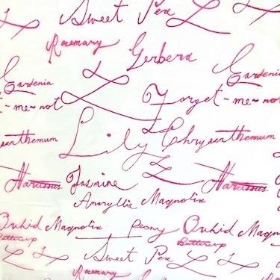 Sweet Pea
Rosemary Gerbera
Gardenia Gardenia
-me-not Forget-me-not
Lily Chrysanthemum
Narcissus Jasmine Narcissus
Amaryllis Magnolia
Orchid Magnolia Peony Orchid Magnolia
Buttercup Buttercup
Sweet Pea
Rosemary